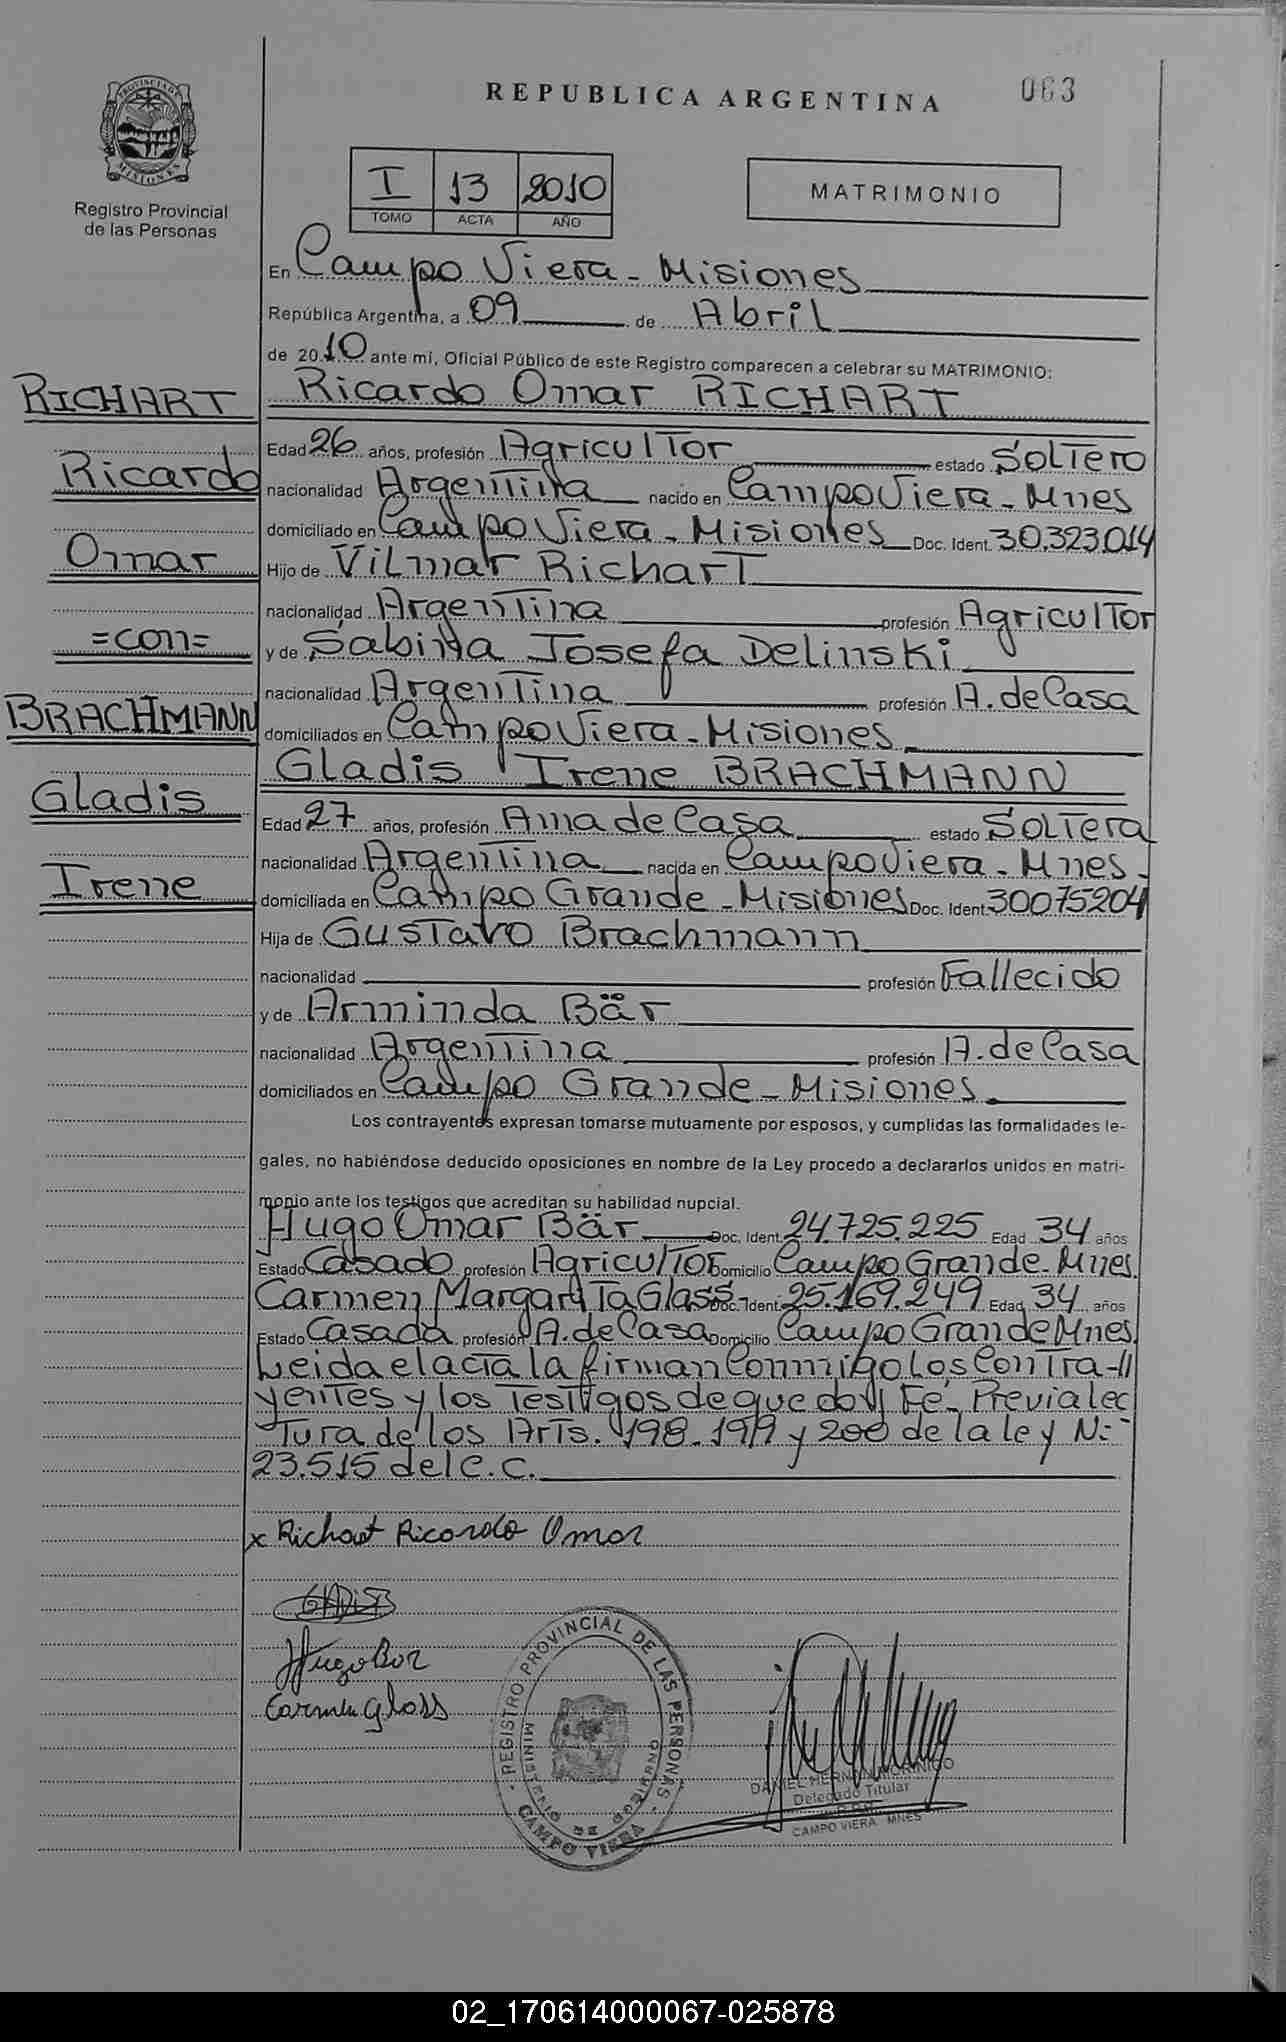 REPUBLICA ARGENTINA
063
PROVINCIA DE MISIONES
Registro Provincial
de las Personas
I 13 2010
TOMO ACTA AÑO
MATRIMONIO
En Campo Viera - Misiones
República Argentina, a 09 de Abril
de 2010 ante mi, Oficial Público de este Registro comparecen a celebrar su MATRIMONIO:
RICHART
Ricardo
Omar
=con=
BRACHMANN
Gladis
Irene
Ricardo Omar RICHART
Edad 26 años, profesión Agricultor estado Soltero
nacionalidad Argentina nacido en Campo Viera - Mnes
domiciliado en Campo Viera - Misiones Doc. Ident. 30.323.014
Hijo de Vilmar Richart
nacionalidad Argentina profesión Agricultor
y de Sabina Josefa Delinski
nacionalidad Argentina profesión A. de Casa
domiciliados en Campo Viera - Misiones
Gladis Irene BRACHMANN
Edad 27 años, profesión Ama de Casa estado Soltera
nacionalidad Argentina nacida en Campo Viera - Mnes -
domiciliada en Campo Grande - Misiones Doc. Ident. 30075204
Hija de Gustavo Brachmann
nacionalidad profesión Fallecido
y de Arminda Bär
nacionalidad Argentina profesión A. de Casa
domiciliados en Campo Grande - Misiones
Los contrayentes expresan tomarse mutuamente por esposos, y cumplidas las formalidades le-
gales, no habiéndose deducido oposiciones en nombre de la Ley procedo a declararlos unidos en matri-
monio ante los testigos que acreditan su habilidad nupcial.
Hugo Omar Bär Doc. Ident. 24.725.225 Edad 34 años
Estado Casado profesión Agricultor Domicilio Campo Grande - Mnes
Carmen Margarita Glass Doc. Ident. 25.169.249 Edad 34 años
Estado Casada profesión A. de Casa Domicilio Campo Grande Mnes
Leida el acta la firman Conmigo Los Contra-//
yentes y los Testigos de que doy Fé. Previa lec
Tura de los Arts. 198. 199 y 200 de la ley Nº
23.515 del C.C.
x Richart Ricardo Omar
GLADIS B
Hugo Bar
Carmen Glass
· REGISTRO PROVINCIAL DE LAS PERSONAS ·
MINISTERIO DE GOBIERNO
CAMPO VIERA
DANIEL HERNAN MORINIGO
Delegado Titular
CAMPO VIERA MNES
02_170614000067-025878